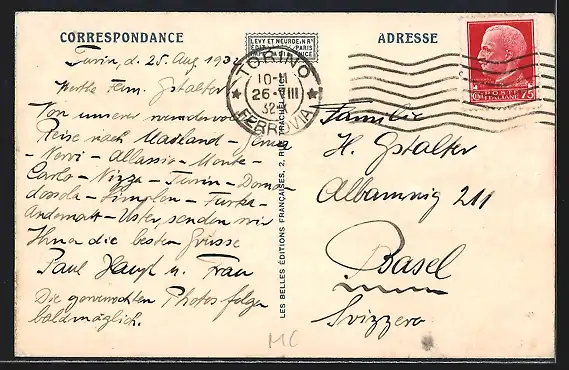 CORRESPONDANCE
LEVY ET NEURDEIN RÉUNIS
ADRESSE
Turin, d. 25. Aug 1932
Werthe Fam. Gstalter
Von unserer wundervollen
Reise nach Mailand – Genua
– Nervi – Allassio – Monte-
Carlo – Nizza – Turin – Domo-
dossola – Simplon – Furka –
Andermatt – Uster, senden wir
Ihnen die besten Grüsse
Paul Haupt u. Frau
Die gewünschten Photos folgen
baldmöglich.
TORINO
10-11
26·VIII
32
FERROVIA
LES BELLES ÉDITIONS FRANÇAISES, 2, RUE TRACHEL, NICE
POSTE
ITALIANE
75
Familie
H. Gstalter
Albannstg 211
Basel
Svizzera
MC